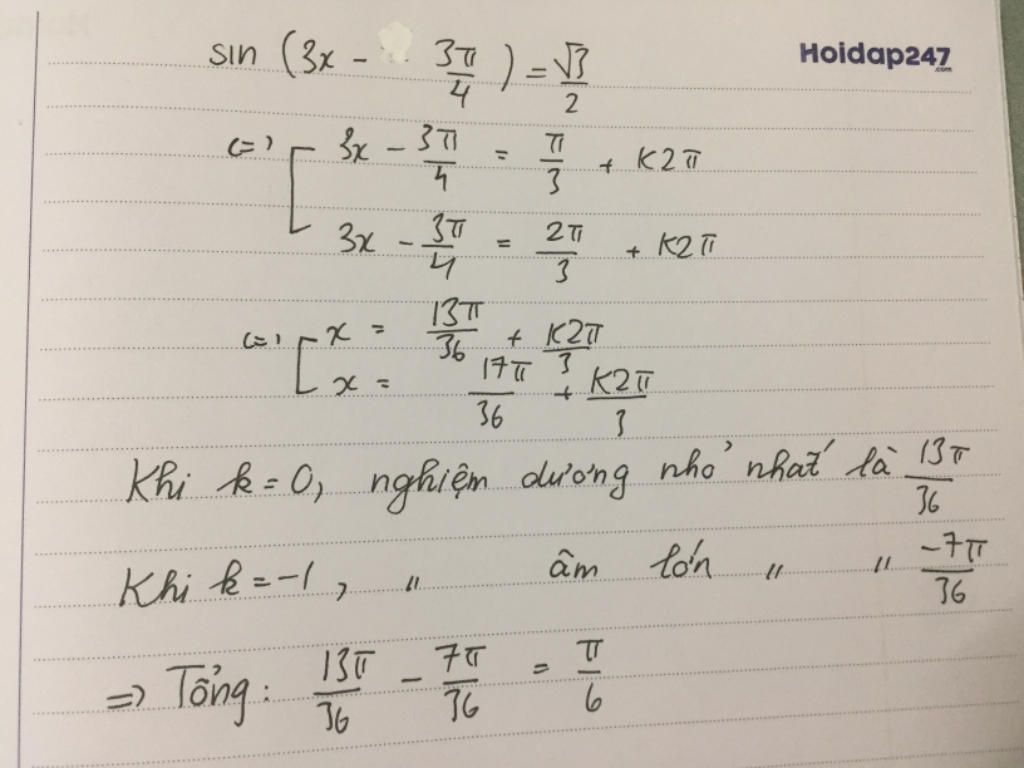 sin (3x - 3π/4) = √3/2
Hoidap247
.com
<=> [ 3x - 3π/4 = π/3 + K2π
3x - 3π/4 = 2π/3 + K2π
<=> [ x = 13π/36 + K2π/3
x = 17π/36 + K2π/3
Khi k = 0, nghiệm dương nhỏ nhất là 13π/36
Khi k = -1, " âm lớn " " -7π/36
=> Tổng: 13π/36 - 7π/36 = π/6